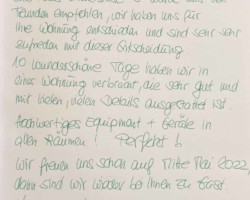 Freunden empfohlen, wir haben uns für
Ihre Wohnung entschieden und sind sehr sehr
zufrieden mit dieser Entscheidung
10 wunderschöne Tage haben wir in
einer Wohnung verbracht, die sehr gut und
mit vielen, vielen Details ausgestattet ist.
Hochwertiges Equipment + Geräte in
allen Räumen! Perfekt!
Wir freuen uns schon auf Mitte Mai 2022,
dann sind wir wieder bei Ihnen zu Gast.